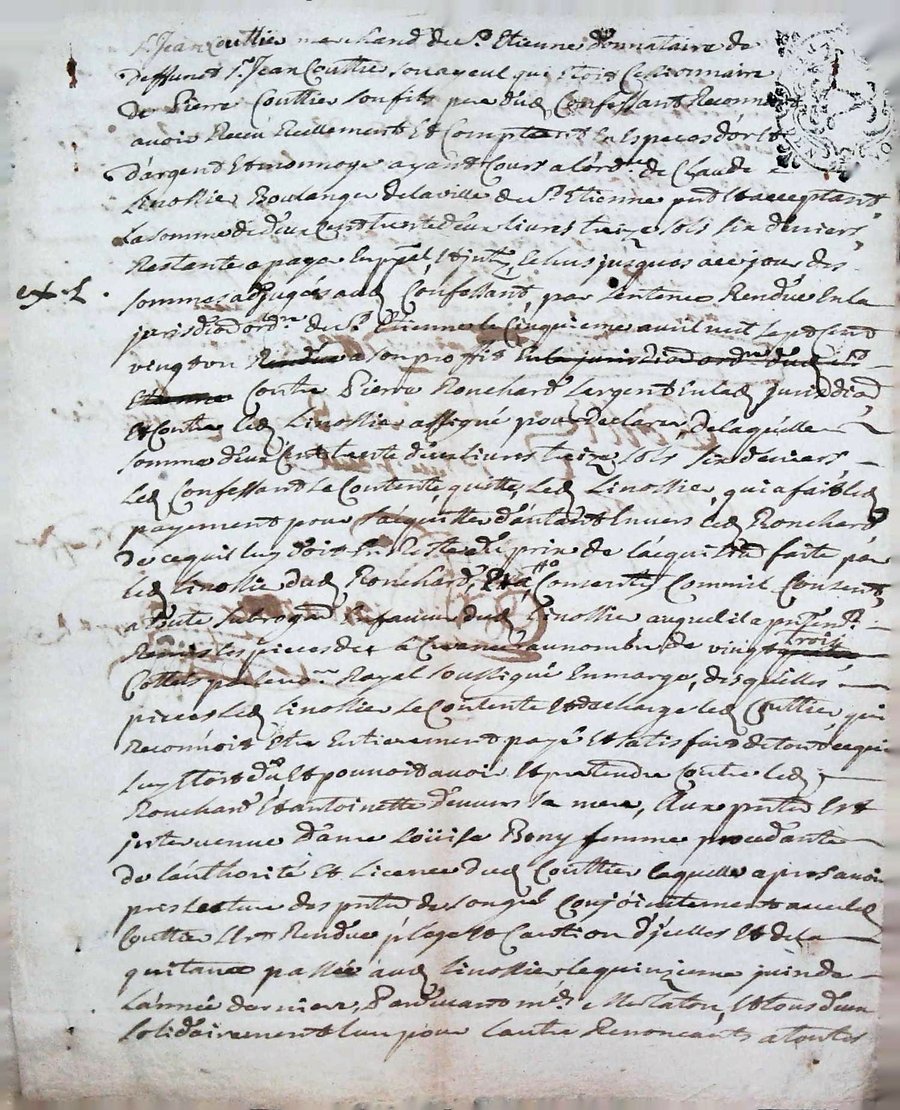 Sr Jean Couttier marchand de St Etienne donnataire de
deffunct Sr Jean Couttier son ayeul qui etoit Cessionnaire
de Pierre Couttier son fils pere dud Confessant Reconnoit
avoir Receu Reellement Et Comptant En Especes d'or Et
d'argent Et monnoye ayant Cours a l'ordre de Claude
Linossier Boulanger de la ville de St Etienne pnt Et acceptant
La somme de deux Cent trente deux livres treize sols six deniers
Restante a payer En ppal Et intts Echus jusques a ce jour des
sommes adjugées aud Confessant, par sentence Rendüe En la
ex. L.
jurisdiaon ordre de St Etienne le Cinquieme avril mil sept Cent
vingt Rendüe a son proffit En la jurisdiaon ordre dud St
Etienne Contre Pierre Ronchard sergent En lad jurisdiaon
Et Contre led Linossier assigné pour declarer, de laquelle
somme deux Cent trente deux livres treize sols six deniers
Led Confessant se Contente, quitte led Linossier, qui a fait led
payement pour s'acquitter d'autant Envers led Ronchard
de ce qu'il luy doit En Reste du prix de l'acquisiaon faite par
led Linossier dud Ronchard, Et a Consenty Comme il Consent
a toute subrogaon En faveur dud Linossier auquel il a pntement
Remis les pieces de sa Creance au nombre de vingt trois
Cottées par le nore Royal soussigné En marge, desquelles
pieces led Linossier se Contente Et decharge led Couttier, qui
Reconnoit Etre Entierement payé Et satisfait de tout ce qui
luy Etoit dû Et pouvoit avoir Et pretendre Contre led
Ronchard Et antoinette sa mere, Aux pntes Est
intervenue dame Loüise Bony femme procedante
de l'authorité Et Licence dud Couttier laquelle apres avoir
pris lecture des pntes de son gré Conjointement avec led
Couttier s'est Rendüe plege Et Caution d'icelles Et de la
quitance passée aud Linossier le quinzieme juin de
L'année derniere, Et tous deux
solidairement l'un pour l'autre Renonçants a toutes